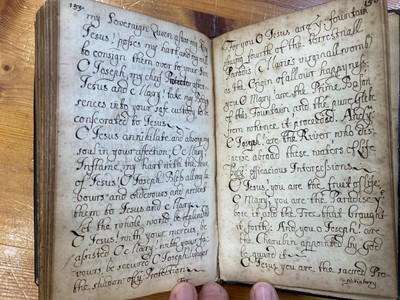 153.
my Soveraign Queen after my King
Jesus: posses my hart and my will
to consign them over to your Son.
O Joseph, my chief Protector after
Jesus and Mary: take my
sences into your safe custody to be
consecrated to Jesus.
O Jesus annihilate and absorp my
soul in your affection; O Mary
Inflame my hart with the love
of Jesus; O Joseph: bless all my la
bours and endevours and present
them to Jesus and Mary.
Let the whole world be replenished
O Jesus, with your mercies, be
assisted O Mary: with your fa
vours, be secured O Joseph under
the shadow of thy Protection.
For
For you O Jesus are the fountain
of the terrestriall
Paradis; Maries virginall womb
is the Origin of all our happyness;
you O Mary: are the Prime Bason
of this Fountain and the pure
from whence it proceeded. And you
O Joseph: are the River who dis
perse abroad these waters of Life
by efficacious Intercession.
O Jesus, you are the fruit of life,
O Mary, you are the Paradise
bore it, and the Tree that brought
it forth: And you O Joseph! are
the Cherubin appointed by God
to guard it.
O Jesus you are the sacred Pro
pitiatory